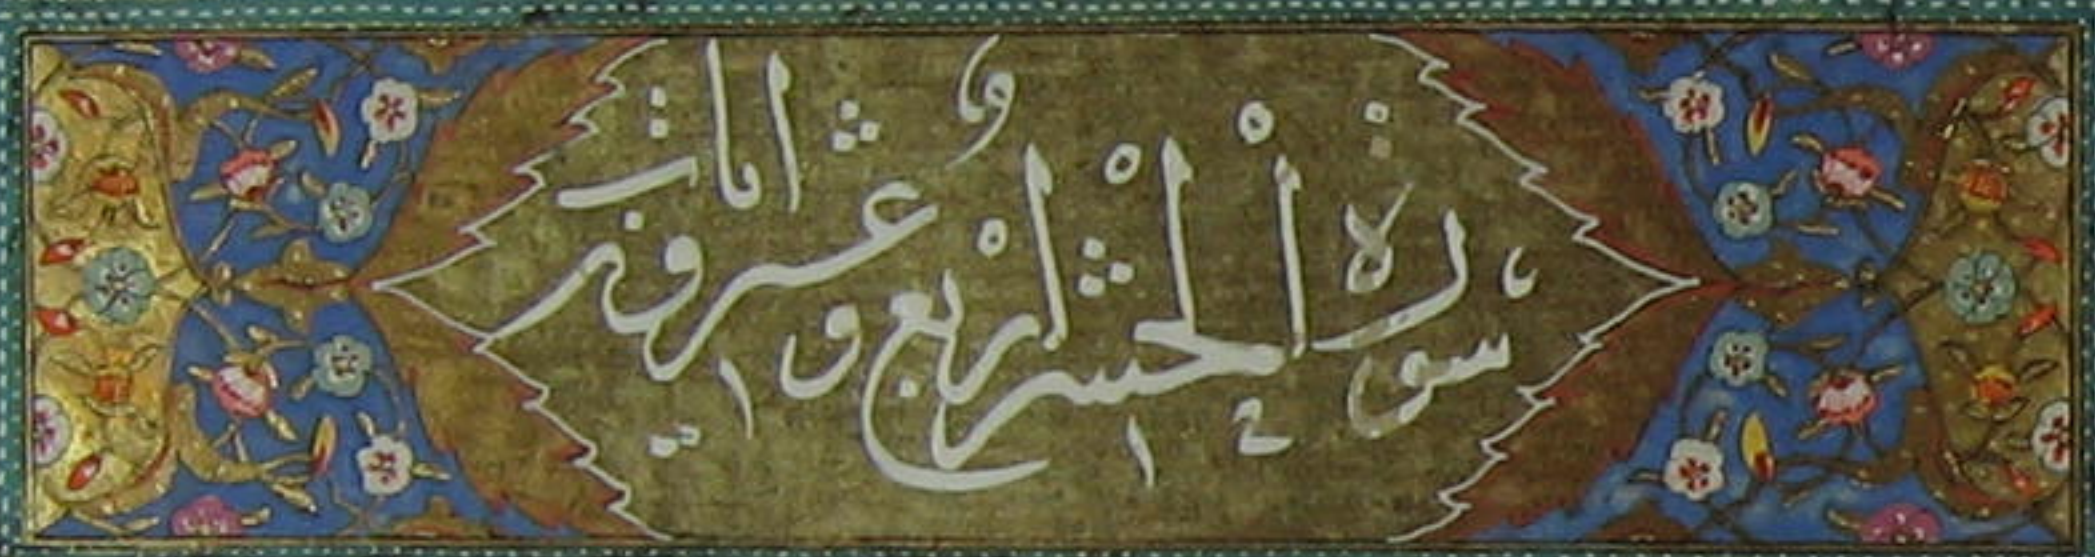 سورة الحشر اربع وعشرون ايات